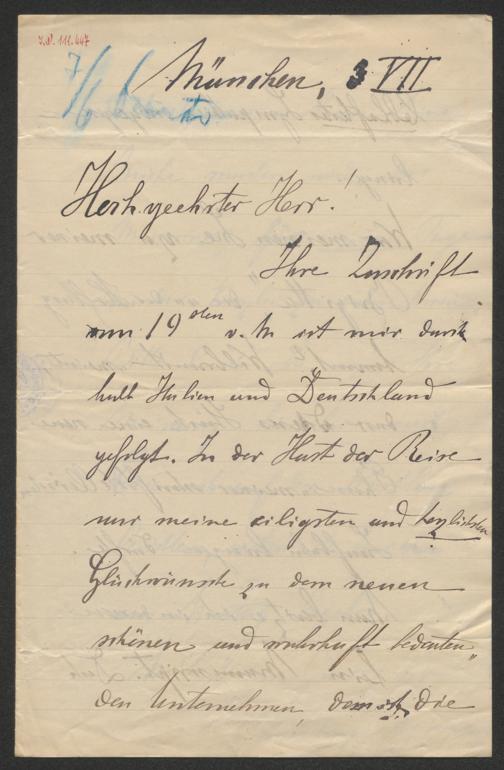 I.N. 111.447
München, 3 VII
Hochgeehrter Herr!
Ihre Zuschrift
vom 19ten v. M ist mir durch
halb Italien und Deutschland
gefolgt. In der Hast der Reise
nur meine eiligsten und herzlichsten
Glückwünsche zu dem neuen
schönen und wahrhaft bedeuten„
den Unternehmen, die